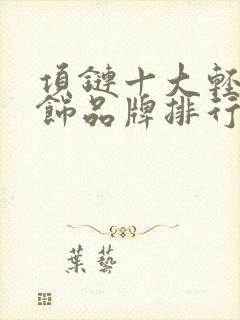 項鏈十大輕
飾品牌排行
葉藝